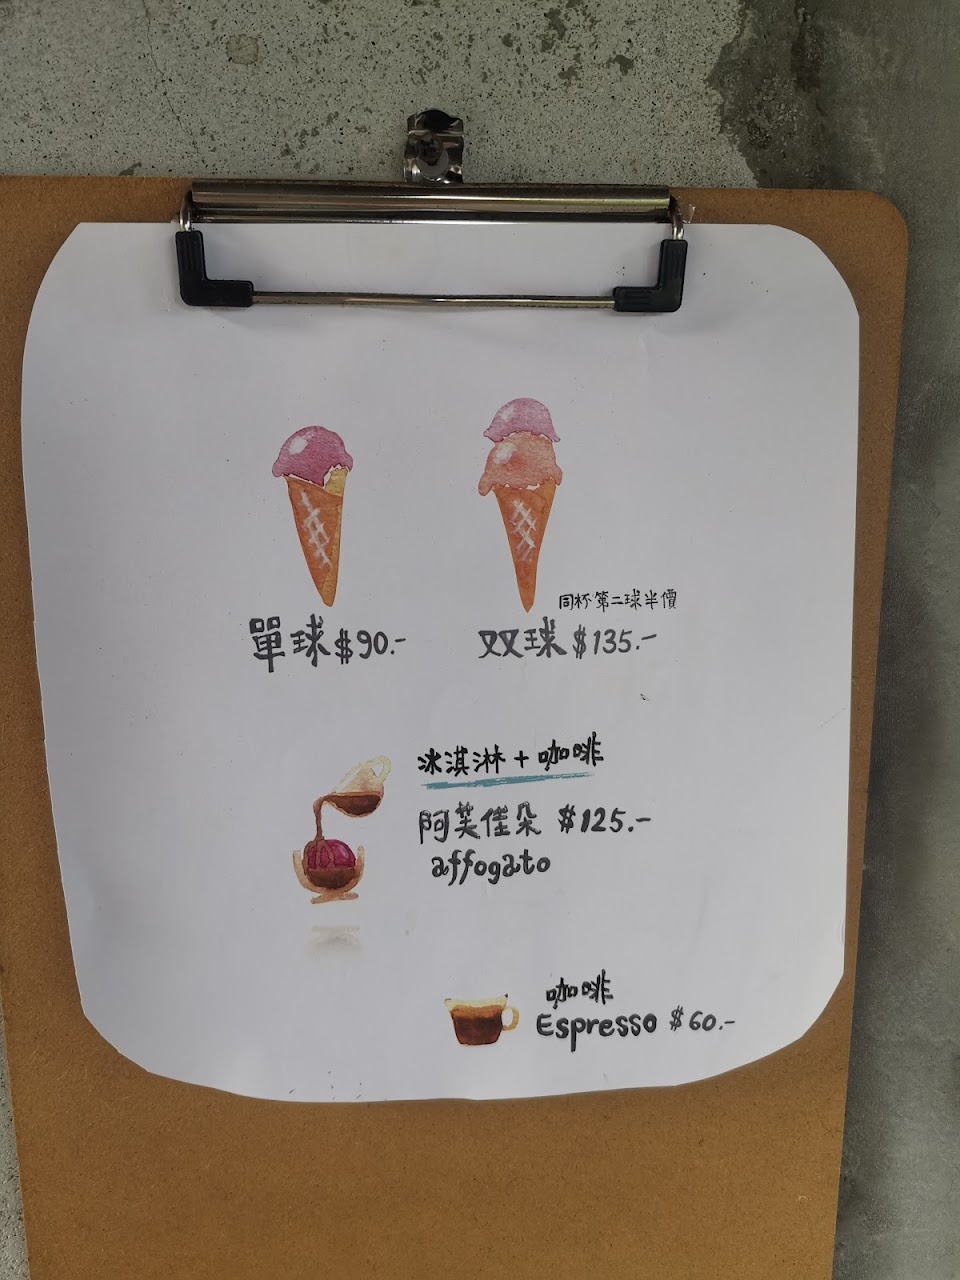 同杯第二球半價
單球 $90.-
双球 $135.-
冰淇淋 + 咖啡
阿芙佳朵 $125.-
affogato
咖啡
Espresso $60.-